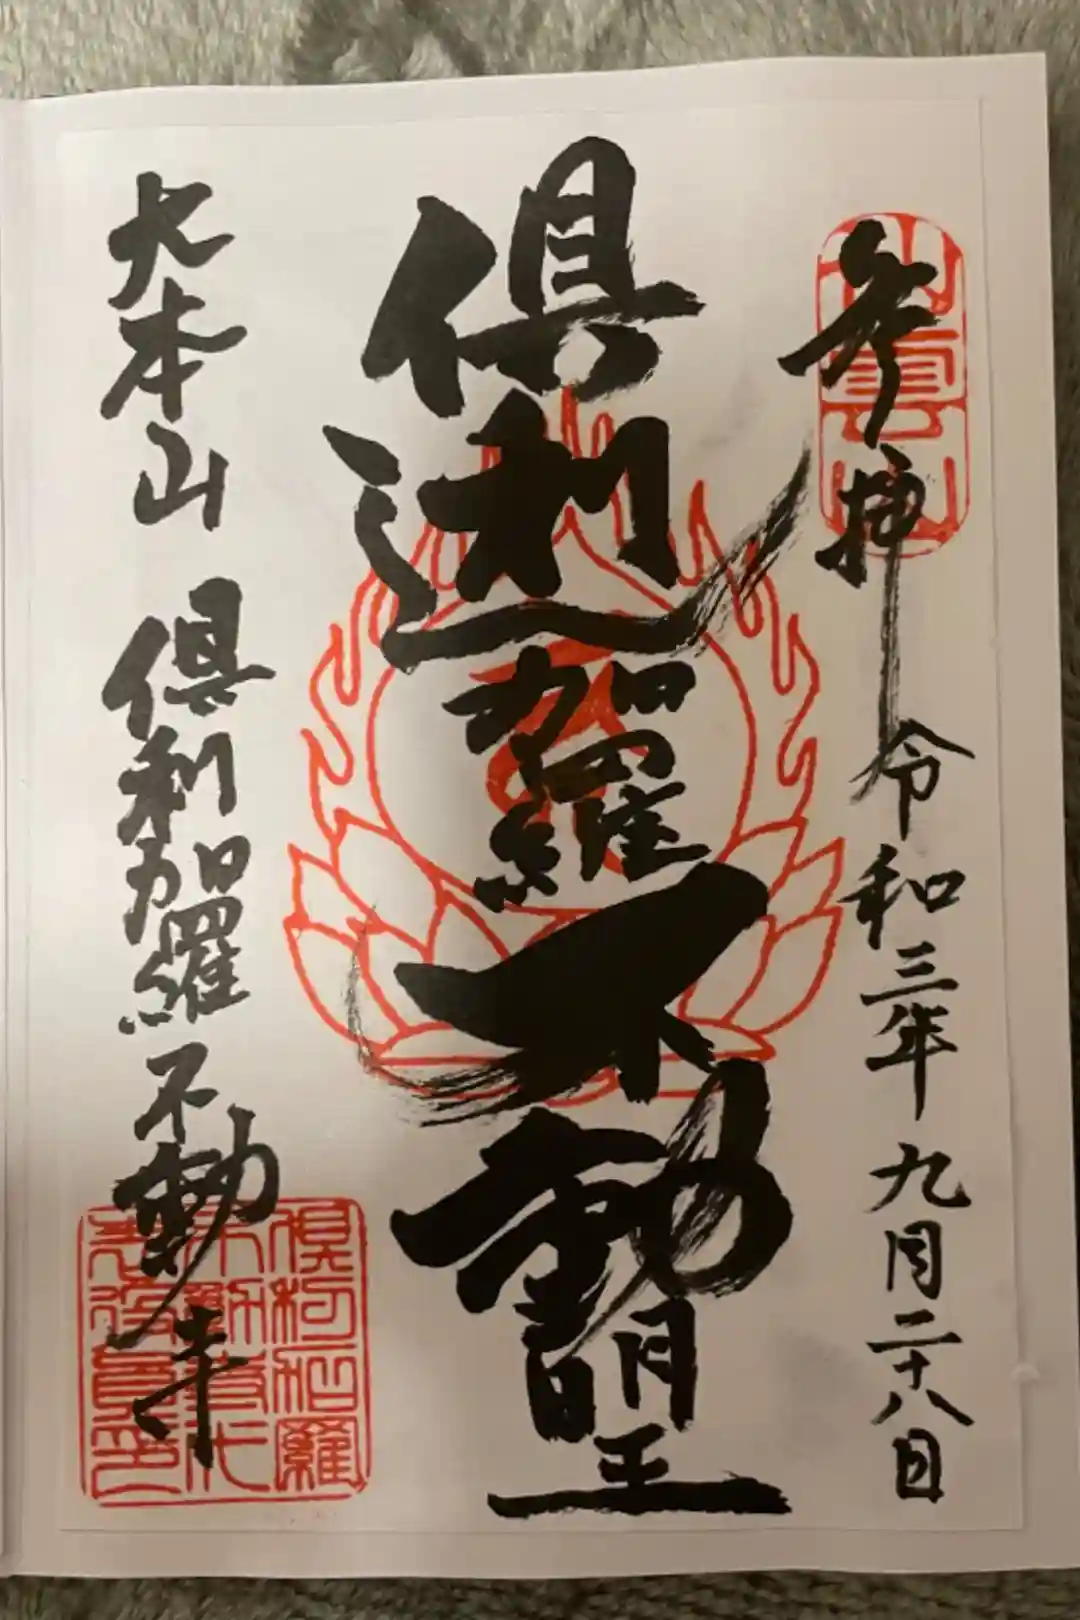 参拝 令和三年九月二十八日
倶利迦羅不動明王
大本山 倶利加羅不動寺